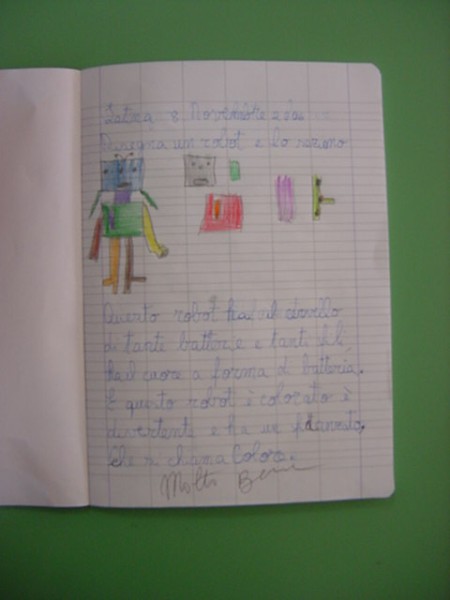 Latina 8 Novembre
Disegna un robot e lo
Questo robot ha il cervello
di tante batterie e tanti fili,
ha il cuore a forma di batteria.
E questo robot è colorato è
divertente e ha un
che si chiama Coloro.
Molto Bene